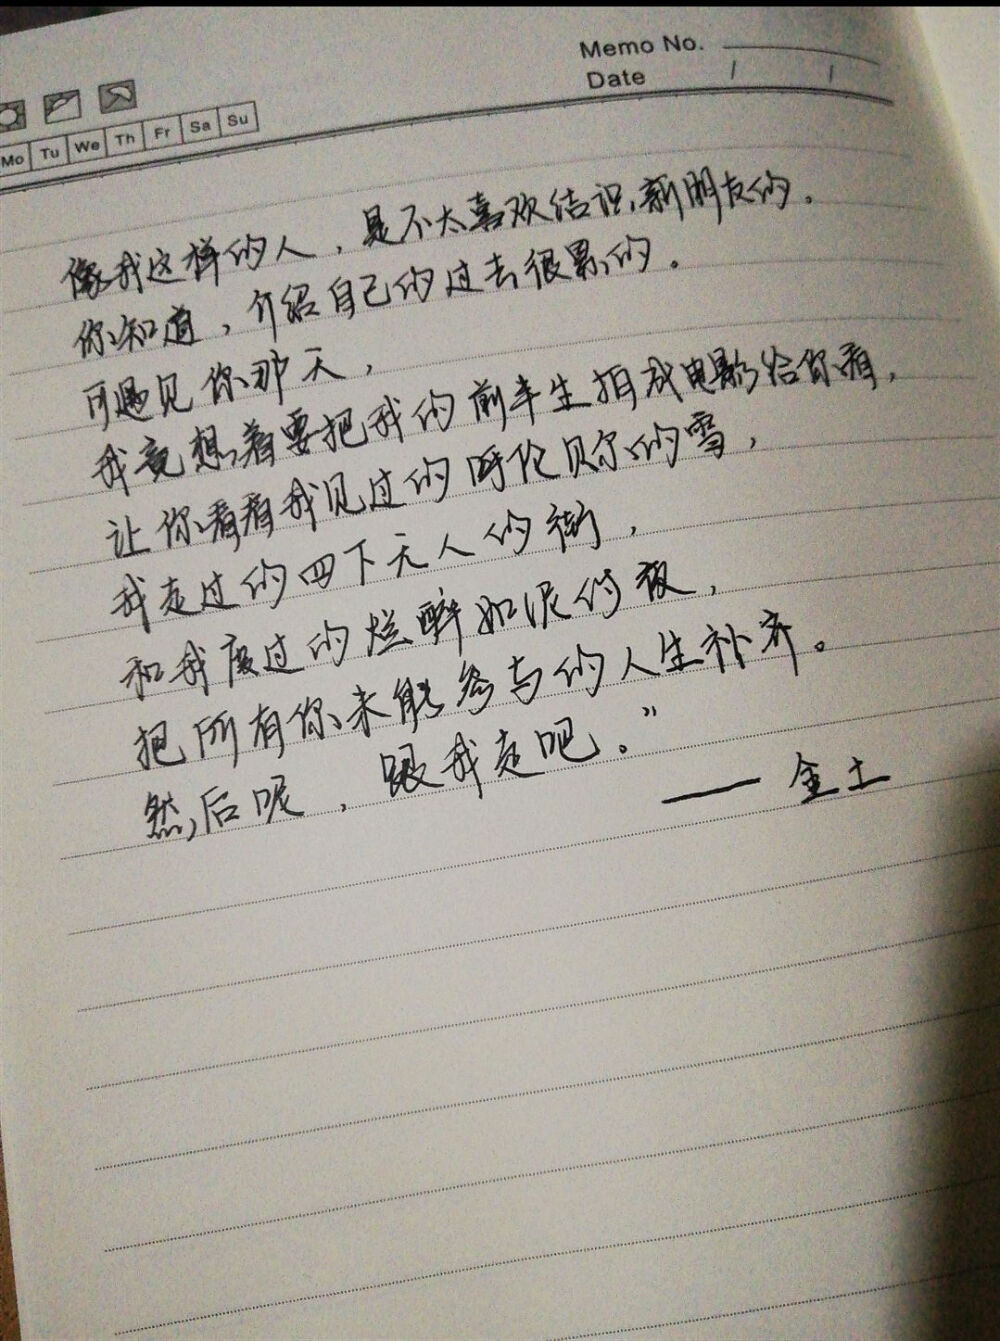 Memo No.
Date / /
Mo Tu We Th Fr Sa Su
像我这样的人，是不太喜欢结识新朋友的。
你知道，介绍自己的过去很累的。
可遇见你那天，
我竟想着要把我的前半生拍成电影给你看，
让你看看我见过的呼伦贝尔的雪，
我走过的四下无人的街，
和我度过的烂醉如泥的夜，
把所有你未能参与的人生补齐。
然后呢，跟我走吧。”
—— 金土